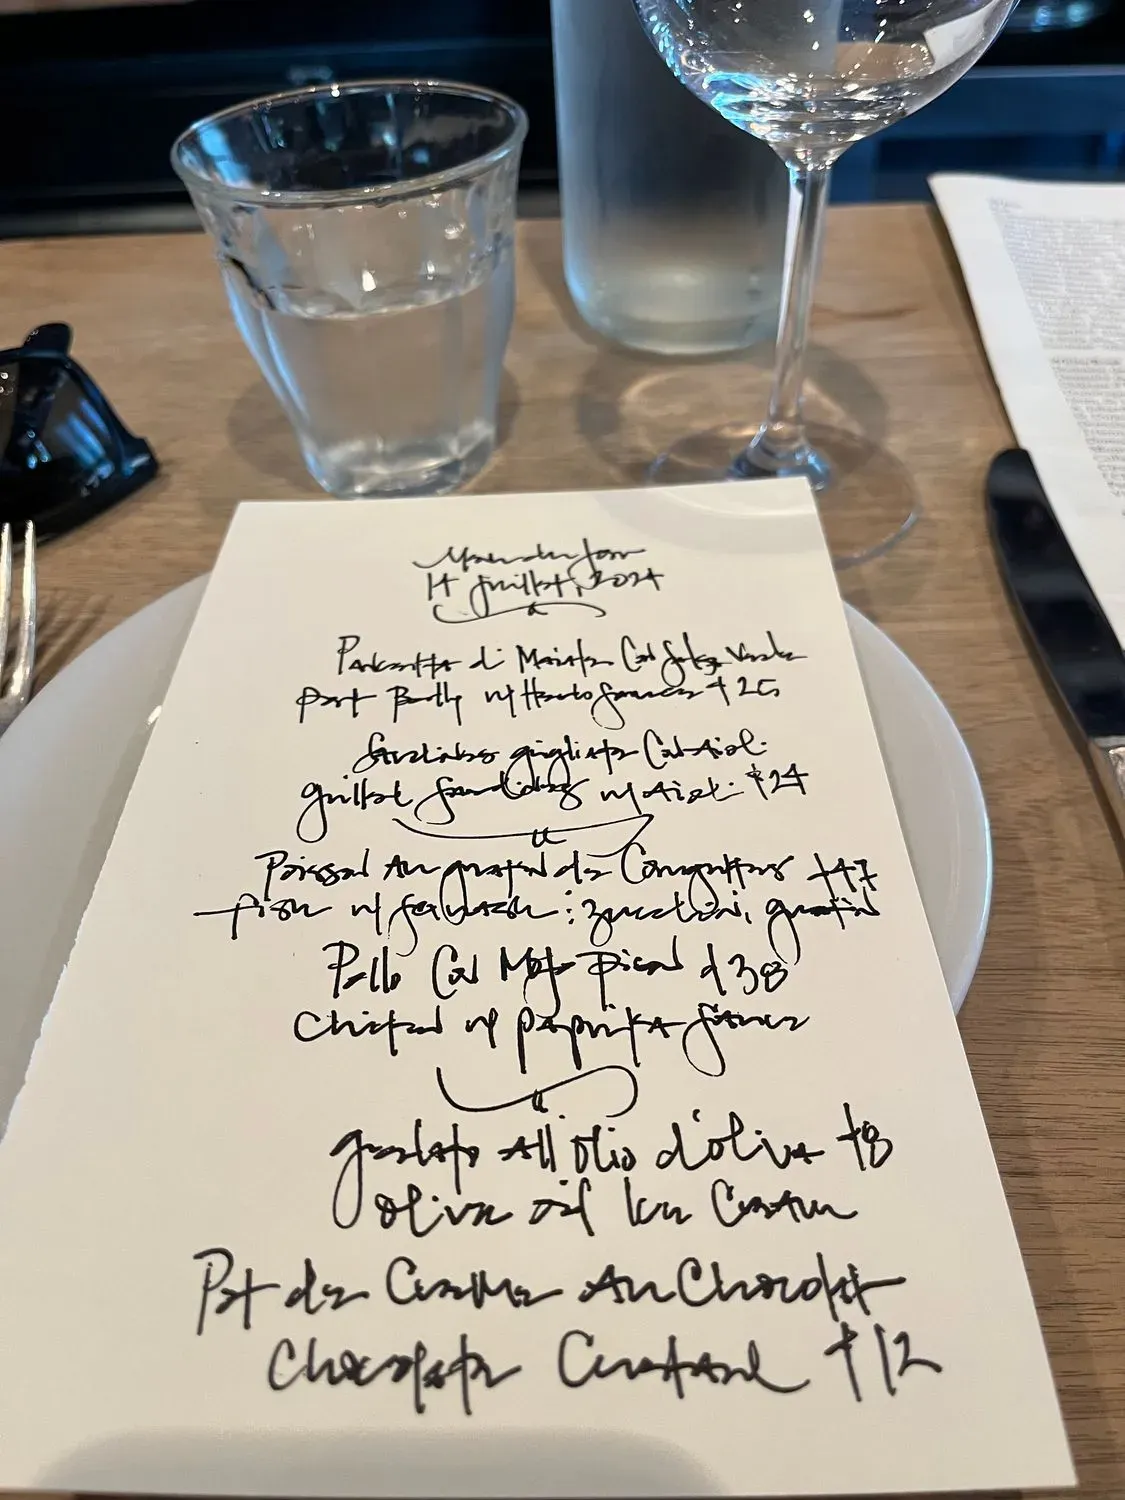 Menu du Jour
14 Juillet, 2024
Pancetta di Maiale Con Salsa Verde
Pork Belly w/ Herb Sauce $25
Sardines grigliate Con Aioli
grilled Sardines w/ Aioli $24
Poisson Au gratin de Courgettes $47
fish w/ zucchini gratin
Pollo Con Mojo Picon $38
Chicken w/ paprika Sauce
gelato all'olio d'oliva $8
olive oil Ice Cream
Pot de Creme Au Chocolat
Chocolate Custard $12